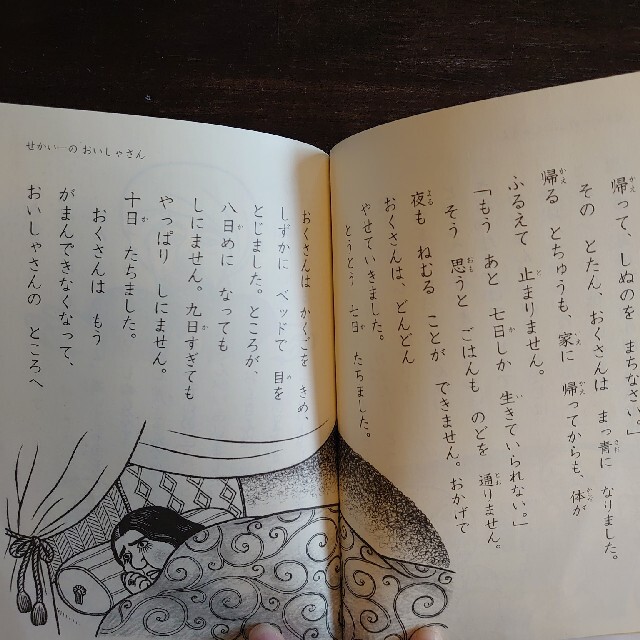 帰って、しぬのを まちなさい。」
その とたん、おくさんは まっ青に なりました。
帰る とちゅうも、家に 帰ってからも、体が
ふるえて 止まりません。
「もう あと 七日しか 生きていられない。」
そう 思うと ごはんも のどを 通りません。おかげで
夜も ねむる ことが できません。
おくさんは、どんどん
やせていきました。
とうとう 七日 たちました。
せかい一の おいしゃさん
おくさんは かくごを きめ、
しずかに ベッドで 目を
とじました。ところが、
八日めに なっても
しにません。九日すぎても
やっぱり しにません。
十日 たちました。
おくさんは もう
がまんできなくなって、
おいしゃさんの ところへ